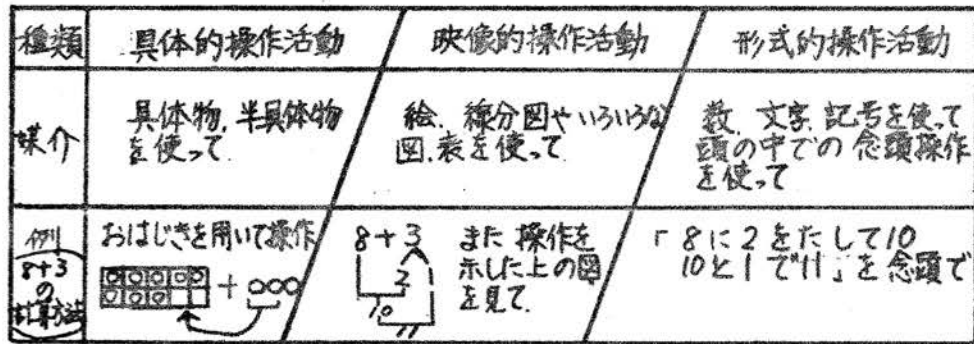 種類
具体的操作活動
映像的操作活動
形式的操作活動
媒介
具体物、半具体物
を使って
絵、線分図やいろいろな
図、表を使って
数、文字、記号を使って
頭の中での念頭操作
を使って
例
8+3
の
計算方法
おはじきを用いて操作
+
8+3
2
10
11
また操作を
示した上の図
を見て.
「8に2をたして10
10と1で11」を念頭で